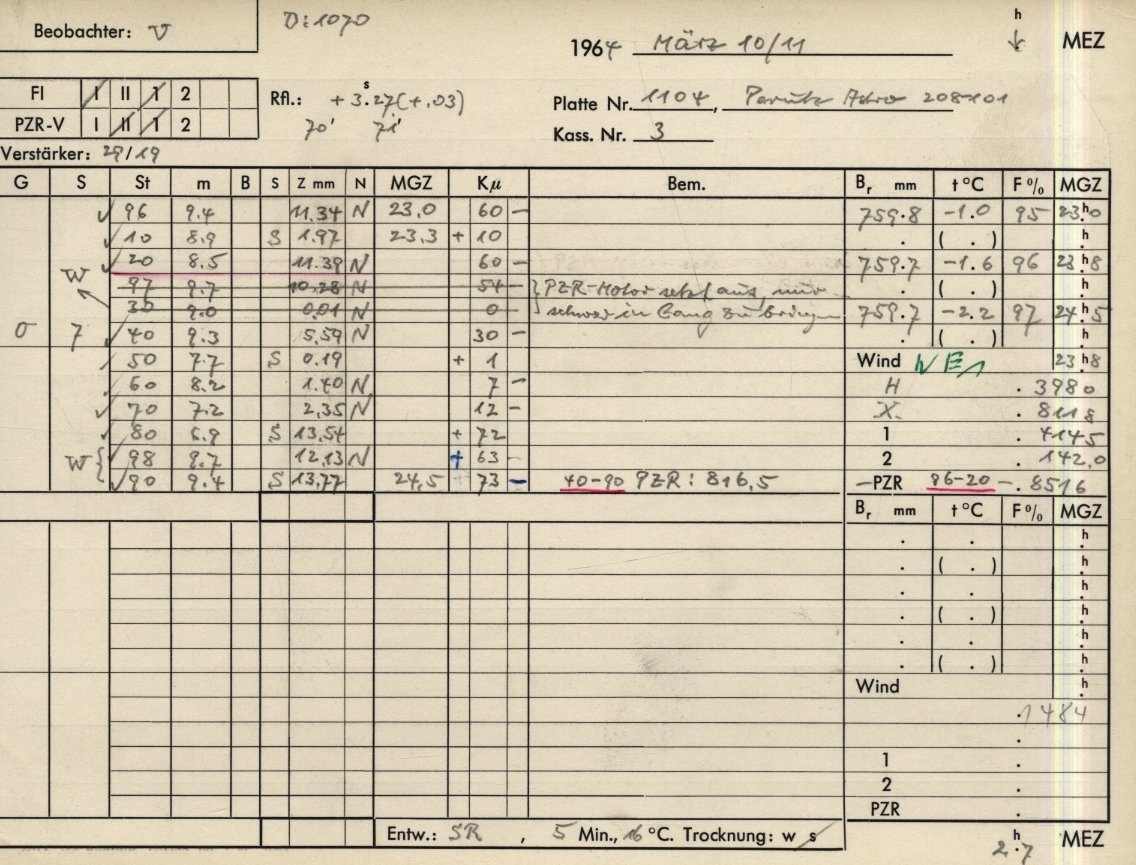 Beobachter: V
D:1070
1964 März 10/11
h MEZ
FI I II 1 2
PZR-V I II 1 2
Rfl.: + 3.ˢ27(+.03)
70' 71'
Platte Nr. 1104, Perutz Astro 208-101
Kass. Nr. 3
Verstärker: 29/19
G S St m B S Z mm N MGZ Kμ Bem. Bᵣ mm t °C F % MGZ
✓ 96 9.4 11.34 N 23,0 60 – 759.8 -1.0 95 23ʰ0
✓ 10 8.9 S 1.97 23.3 + 10 . ( . ) .ʰ
✓ 20 8.5 11.39 N 60 – 759.7 -1.6 96 23ʰ8
W 97 9.7 10.28 N 54 – PZR-Motor setzt aus, nur . ( . ) .ʰ
30 9.0 0,01 N 0 – schwer in Gang zu bringen 759.7 -2.2 97 24ʰ5
0 7 ✓ 40 9.3 5,59 N 30 – . ( . ) .ʰ
✓ 50 7.7 S 0.19 + 1 Wind NE1 23ʰ8
✓ 60 8.2 1.40 N 7 – H . 3980
✓ 70 7.2 2,35 N 12 – X . 8118
✓ 80 6.9 S 13,54 + 72 1 . 4145
W { ✓ 98 9.7 12,13 N + 63 – 2 . 142,0
✓ 90 9.4 S 13,77 24,5 73 – 40-90 PZR: 816,5 –PZR 96-20 – . 8516
Bᵣ mm t °C F % MGZ
. . .ʰ
. ( . ) .ʰ
. . .ʰ
. ( . ) .ʰ
. . .ʰ
. ( . ) .ʰ
Wind .ʰ
. 1484
.
1 .
2 .
PZR .
Entw.: SR , 5 Min., 16 °C. Trocknung: w s
2.ʰ7 MEZ